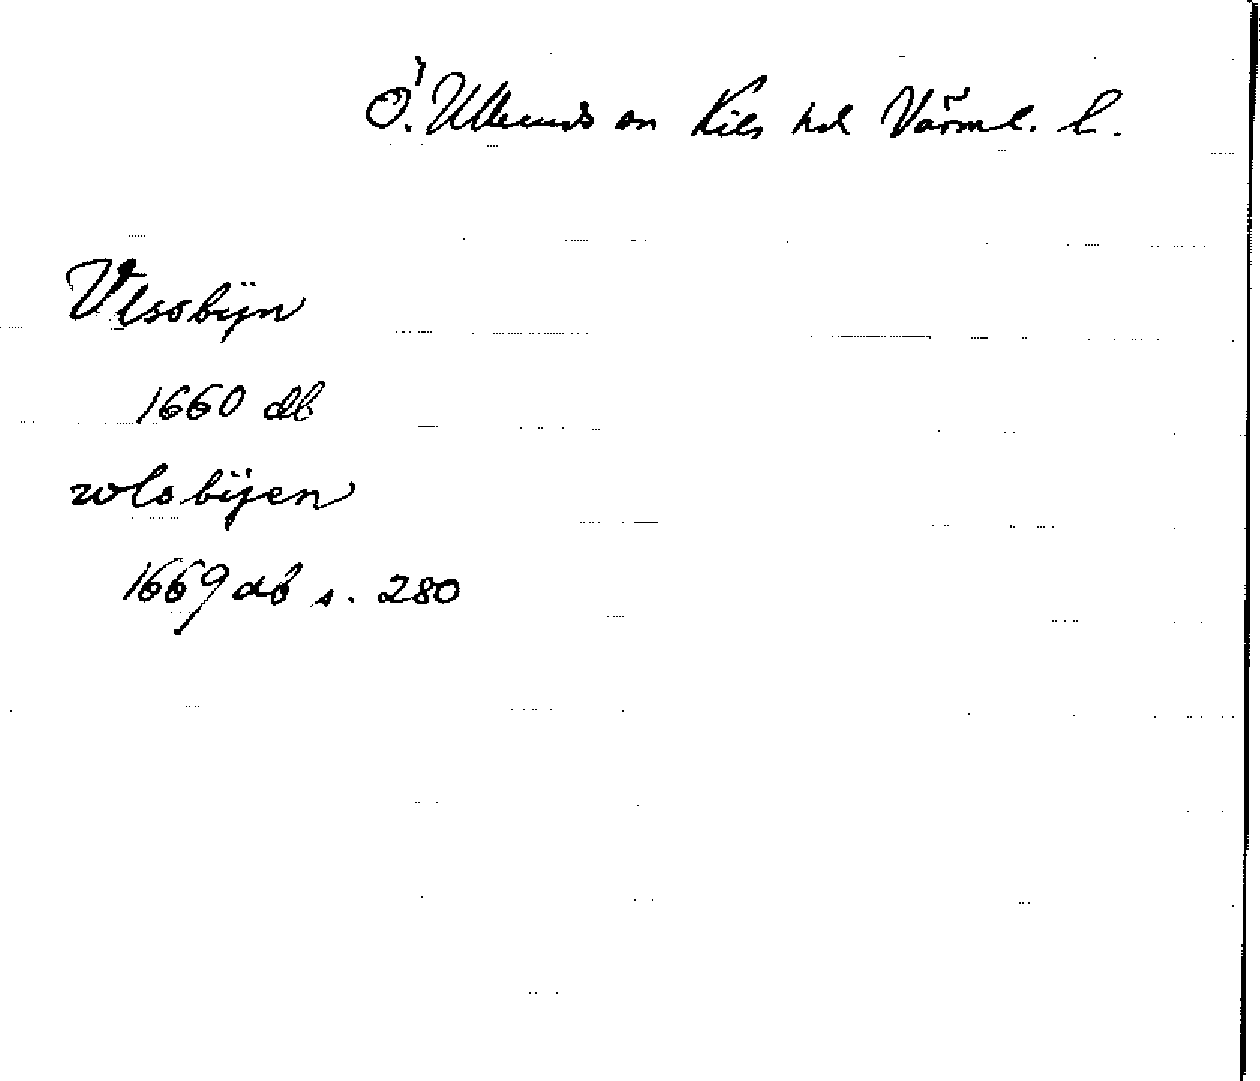 Ö. Ulleruds sn Kils hd Värml. l.
Vlssbÿn
1660 db
wlsbÿen
1669 db s. 280